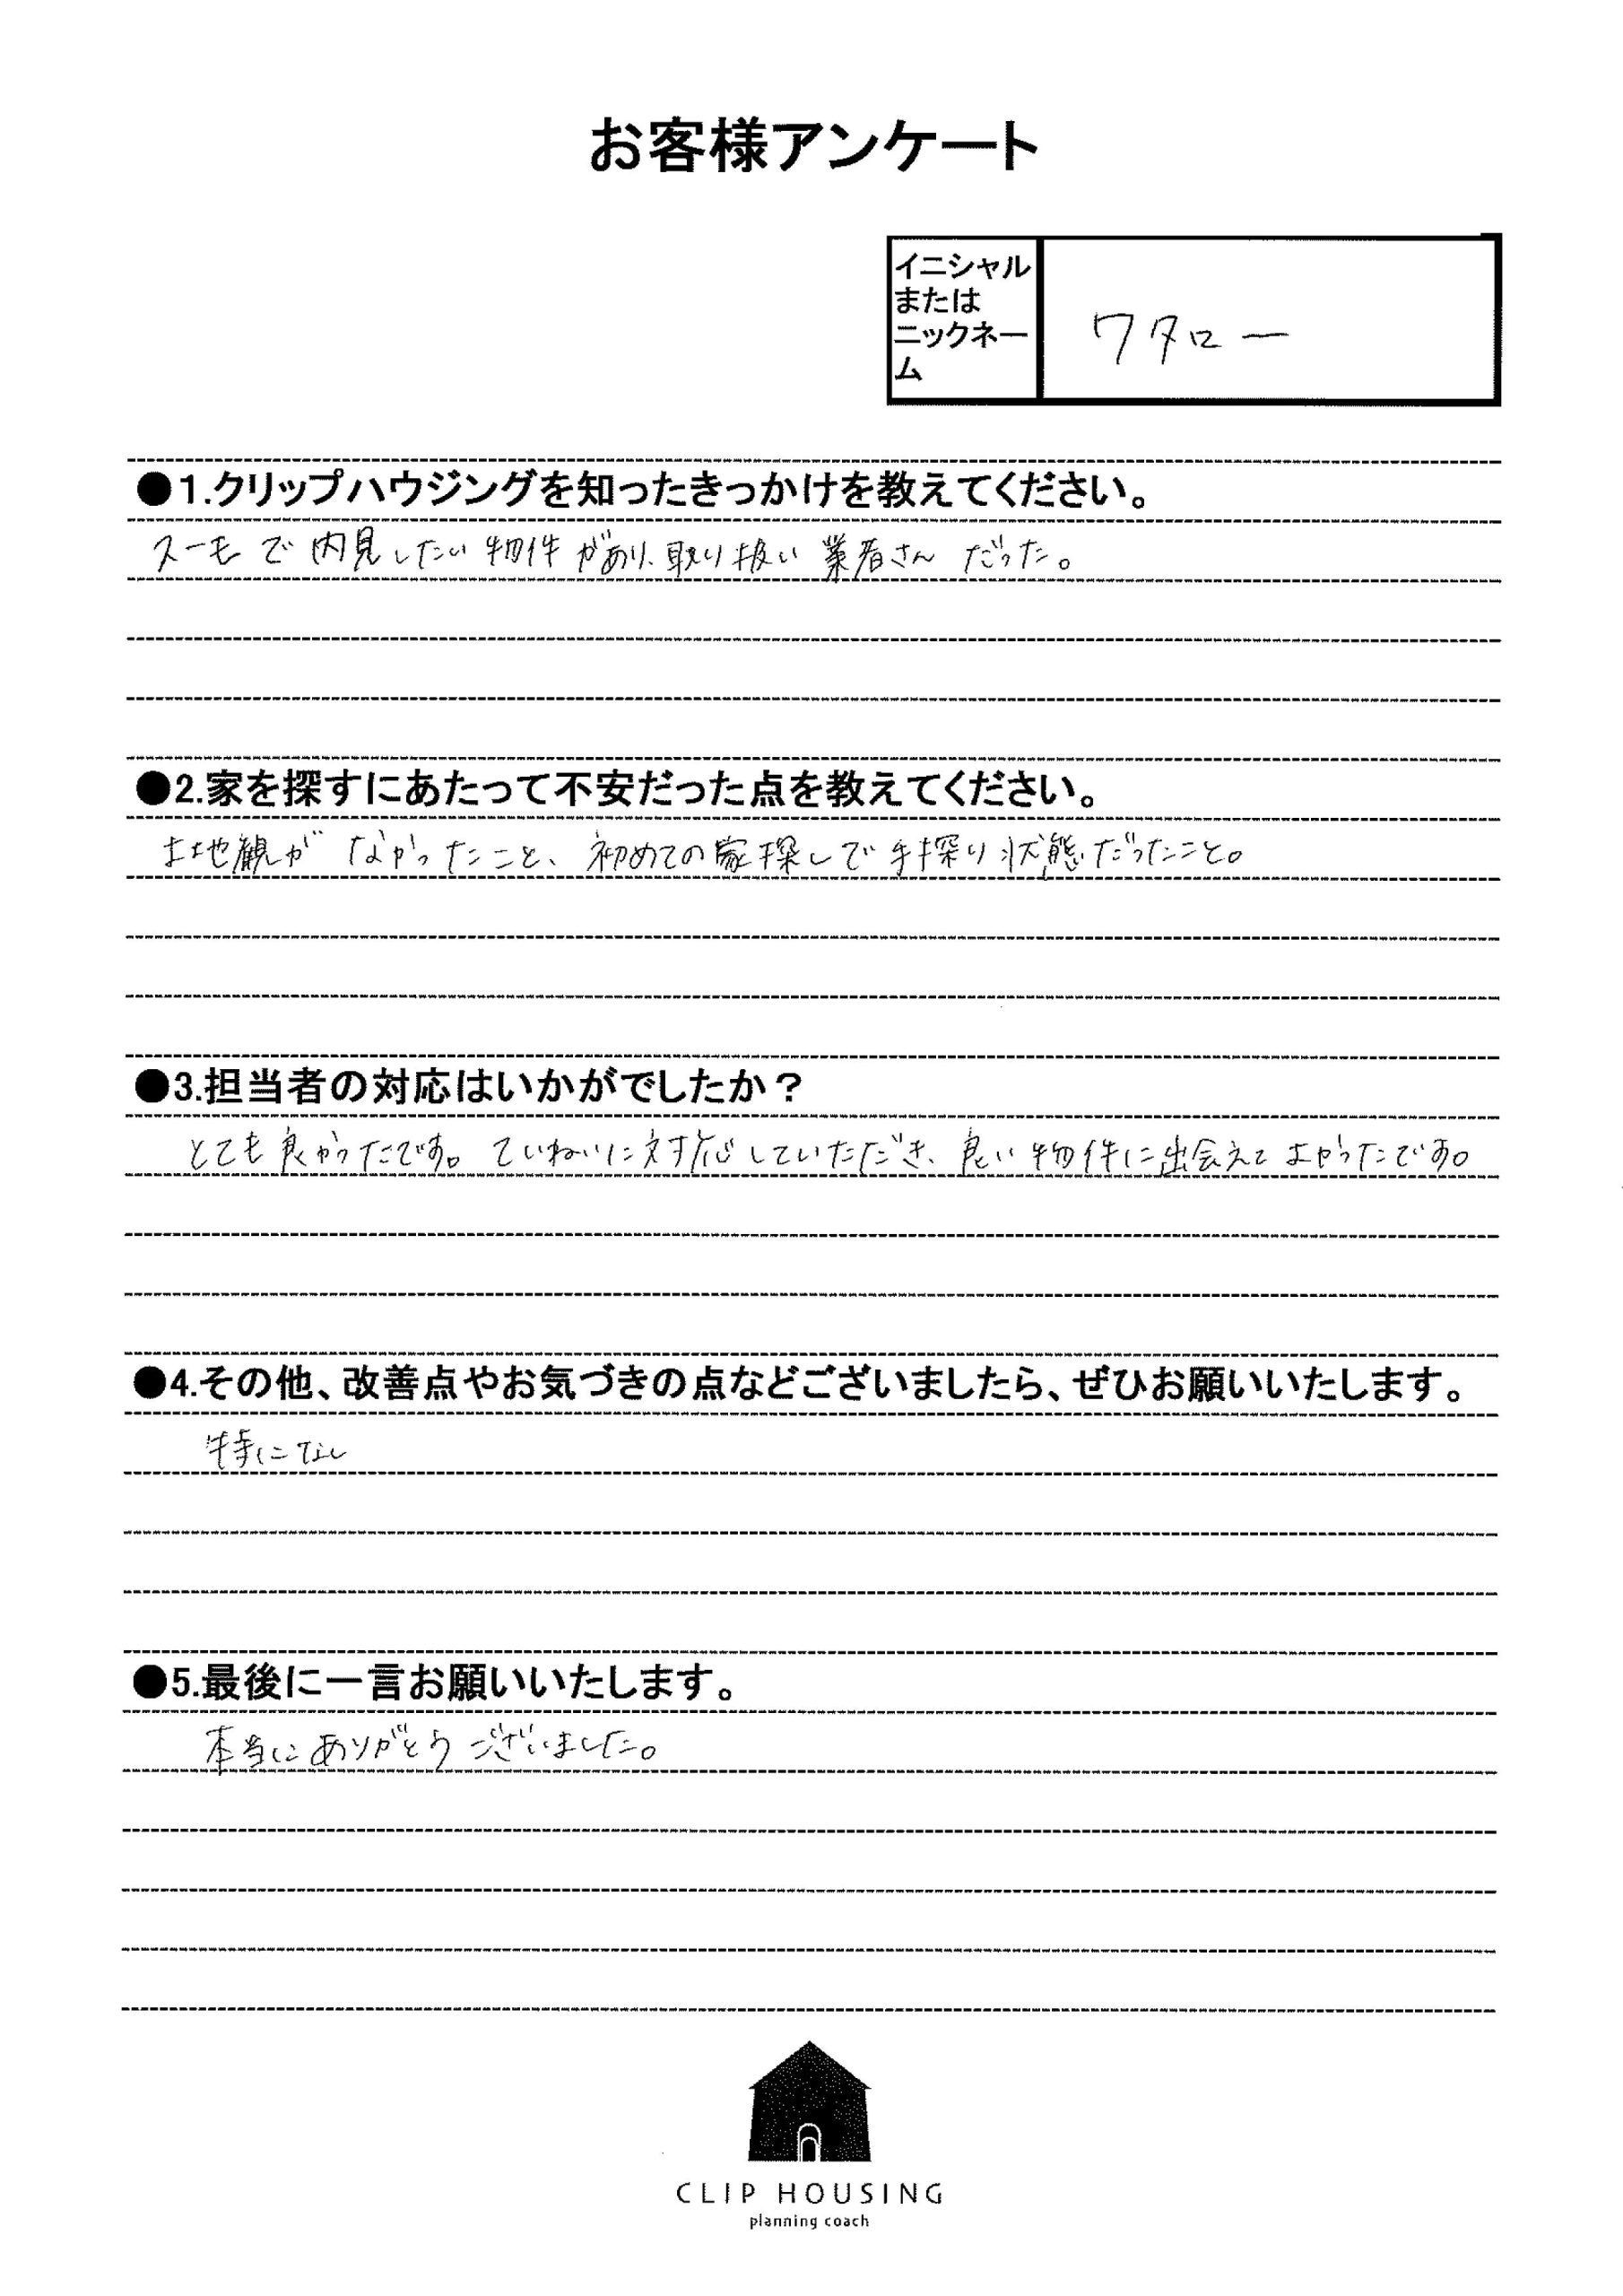 お客様アンケート
イニシャル
または
ニックネー
ム
ワタロー
●1.クリップハウジングを知ったきっかけを教えてください。
スーモで内見したい物件があり、取り扱い業者さんだった。
●2.家を探すにあたって不安だった点を教えてください。
土地観がなかったこと、初めての家探しで手探り状態だったこと。
●3.担当者の対応はいかがでしたか？
とても良かったです。ていねいに対応していただき、良い物件に出会えてよかったです。
●4.その他、改善点やお気づきの点などございましたら、ぜひお願いいたします。
特になし
●5.最後に一言お願いいたします。
本当にありがとうございました。
CLIP HOUSING
planning coach